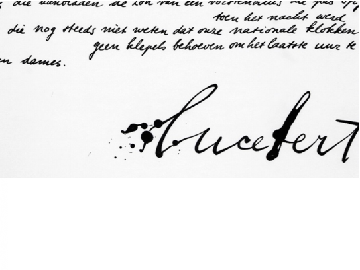 die van een
toen het nacht werd
die nog steeds niet weten dat onze nationale klokken
geen klepels behoeven om het laatste uur te
en dames.
lucebert